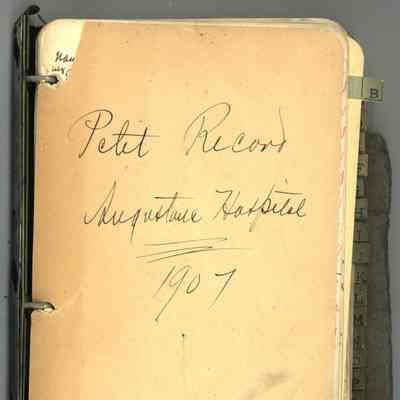 Petit Record
Augustana Hospital
1907
B
K
L
M
N